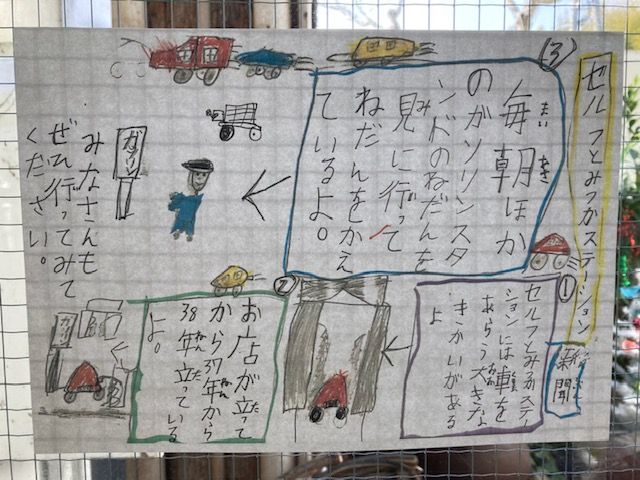 セルフとみつかステイション
新聞
しんぶん
①
セルフとみつかステイ
ションには車を
あらう大きな
きかいがある
よ
②
お店が立って
から37年から
38年立っている
よ。
(3)
毎朝ほか
のガソリンスタ
ンドのねだんを
見に行って
ねだんをかえ
ているよ。
みなさんも
ぜひ行ってみて
ください。